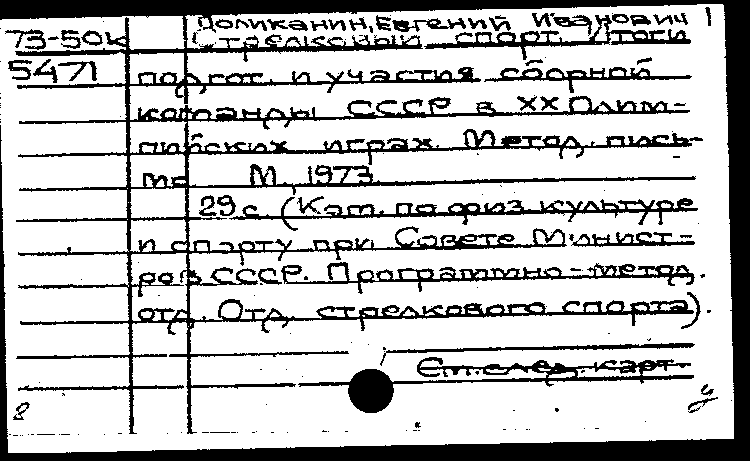 Поликанин, Евгений Иванович 1
73-50к Стрелковый спорт. Итоги
5471 подгот. и участия сборной
команды СССР в XX Олим-
пийских играх. Метод. пись-
мо М., 1973
29 с. (Ком. по физ культуре
и спорту при Совете Минист-
ров СССР. Программно-метод.
отд. Отд. стрелкового спорта).
См. след. карт.
8 у